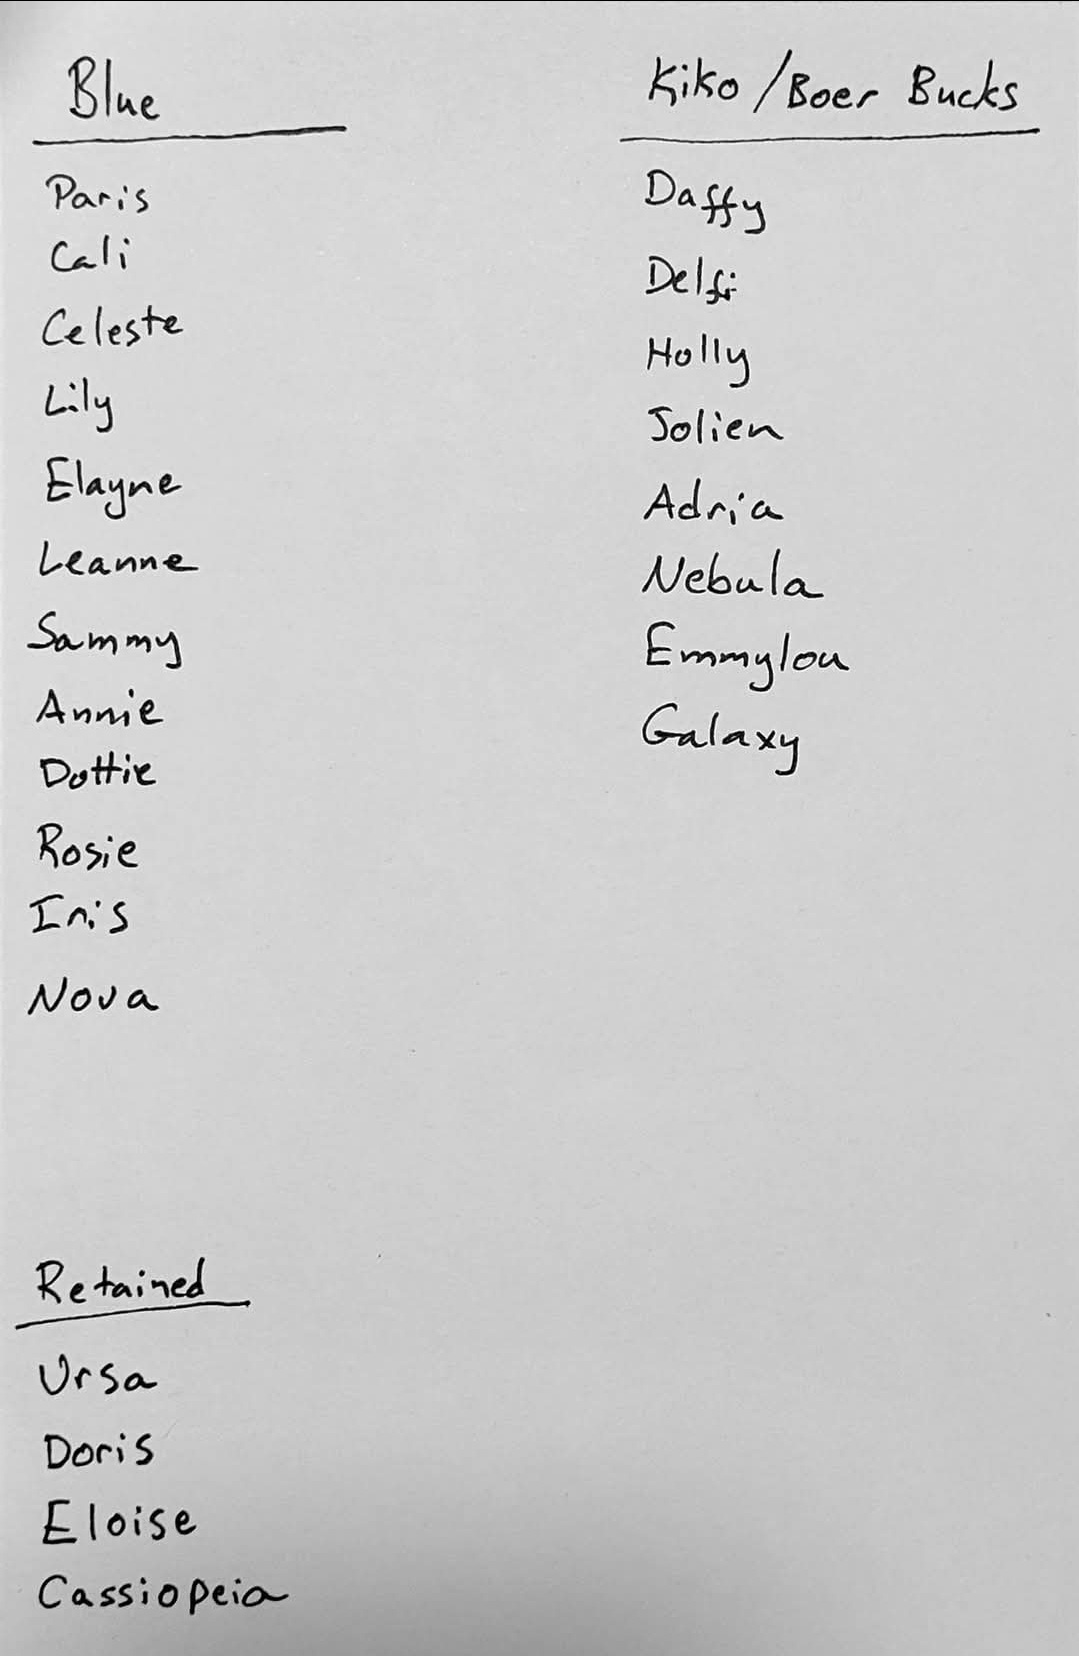 Blue
Paris
Cali
Celeste
Lily
Elayne
Leanne
Sammy
Annie
Dottie
Rosie
Iris
Nova
Kiko/Boer Bucks
Daffy
Delfi
Holly
Jolien
Adria
Nebula
Emmylou
Galaxy
Retained
Ursa
Doris
Eloise
Cassiopeia